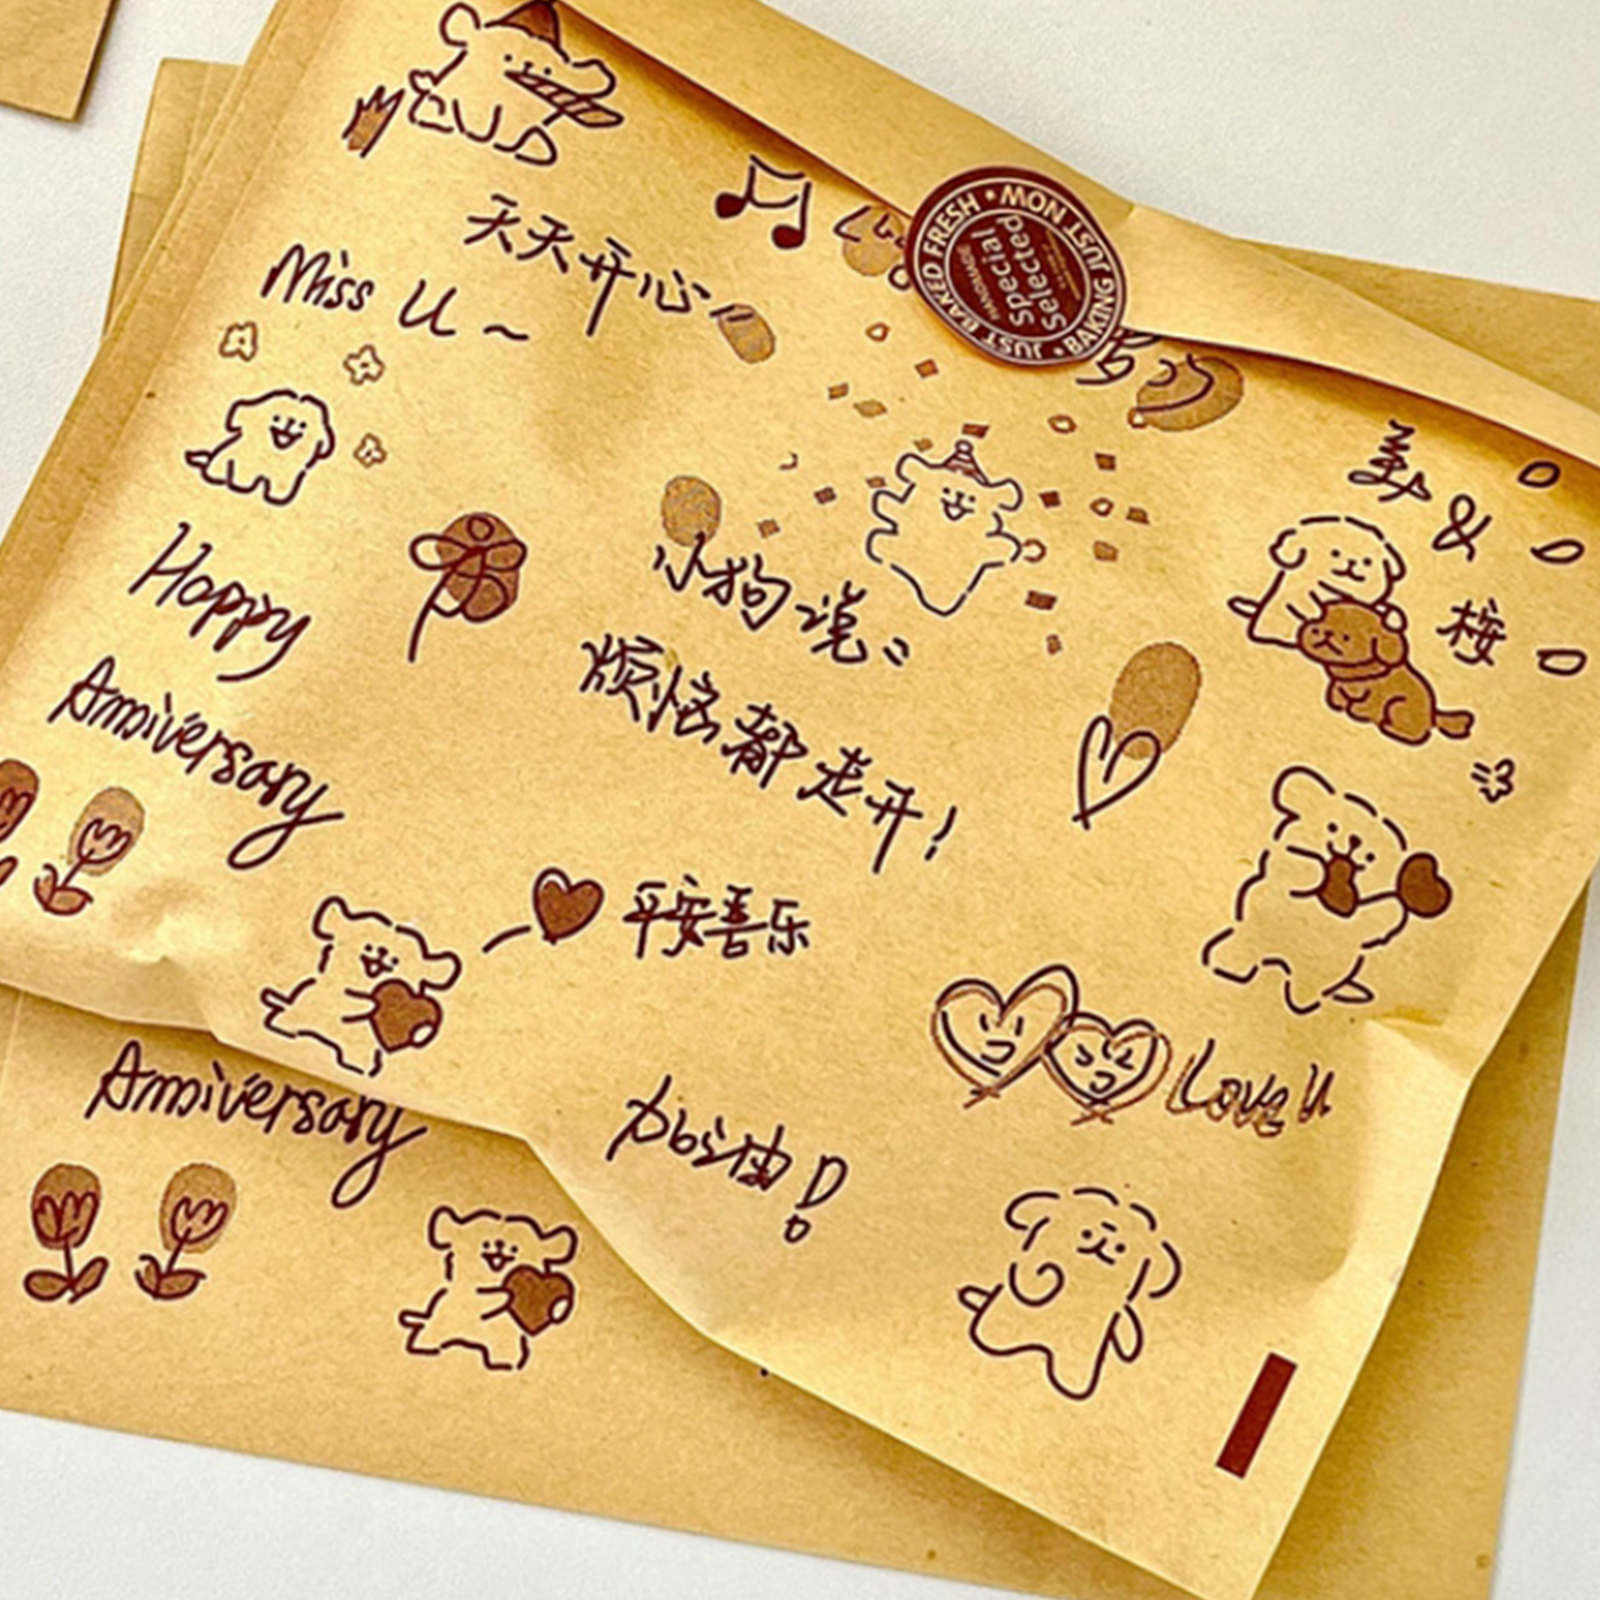 天天开心
Miss U~
JUST BAKED FRESH • NOW JUST BAKING •
HANDMADE
Special
Selected
美 &
桉
Happy
Anniversary
小狗说:
烦恼都走开!
平安喜乐
Love U
加油!
Anniversary